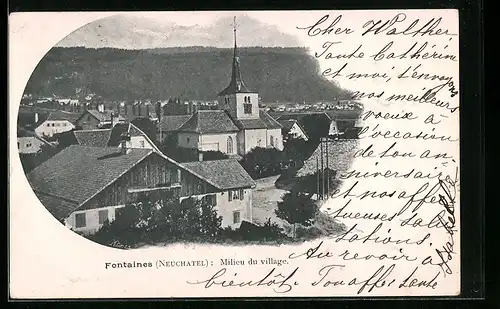 Cher Walther
Tante Cathérine
et moi, t'envoyons
nos meilleurs
voeux à
l'occasion
de ton an-
niversaire
et nos affec-
tueuses salu-
tations.
Au revoir à
bientôt. Ton affec tante
Fontaines (NEUCHATEL): Milieu du village.